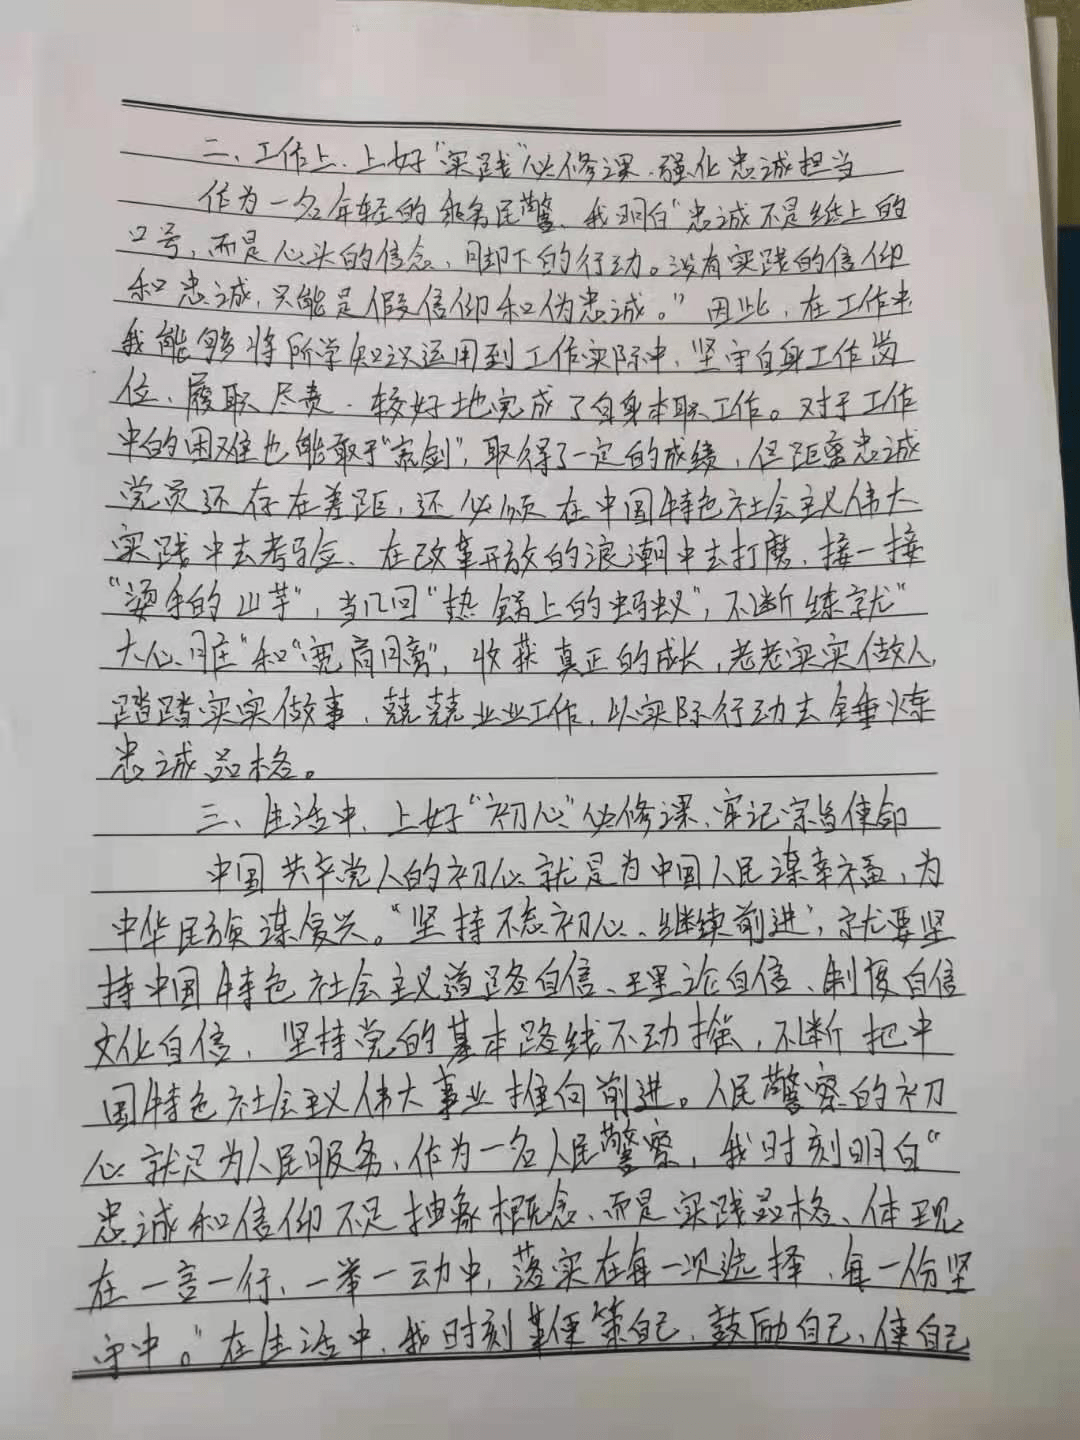 二、工作上,上好“实践”必修课,强化忠诚担当
作为一名年轻的税务民警,我明白“忠诚不是纸上的
口号,而是心头的信念、脚下的行动。没有实践的信仰
和忠诚,只能是假信仰和伪忠诚。”因此,在工作中
我能够将所学知识运用到工作实际中,坚守自身工作岗
位、履职尽责,较好地完成了自身本职工作。对于工作
中的困难也能敢于“亮剑”,取得了一定的成绩,但距离忠诚
党员还存在差距,还必须在中国特色社会主义伟大
实践中去考验、在改革开放的浪潮中去打磨,接一接
“烫手的山芋”,当几回“热锅上的蚂蚁”,不断练就“
大心脏”和“宽肩膀”,收获真正的成长,老老实实做人,
踏踏实实做事,兢兢业业工作,以实际行动去锤炼
忠诚品格。
三、生活中,上好“初心”必修课,牢记宗旨使命
中国共产党人的初心就是为中国人民谋幸福,为
中华民族谋复兴。“坚持不忘初心、继续前进,就要坚
持中国特色社会主义道路自信、理论自信、制度自信
文化自信,坚持党的基本路线不动摇,不断把中
国特色社会主义伟大事业推向前进。人民警察的初
心就是为人民服务,作为一名人民警察,我时刻明白“
忠诚和信仰不是抽象概念,而是实践品格、体现
在一言一行、一举一动中,落实在每一次选择,每一份坚
守中。”在生活中,我时刻鞭策自己,鼓励自己,使自己